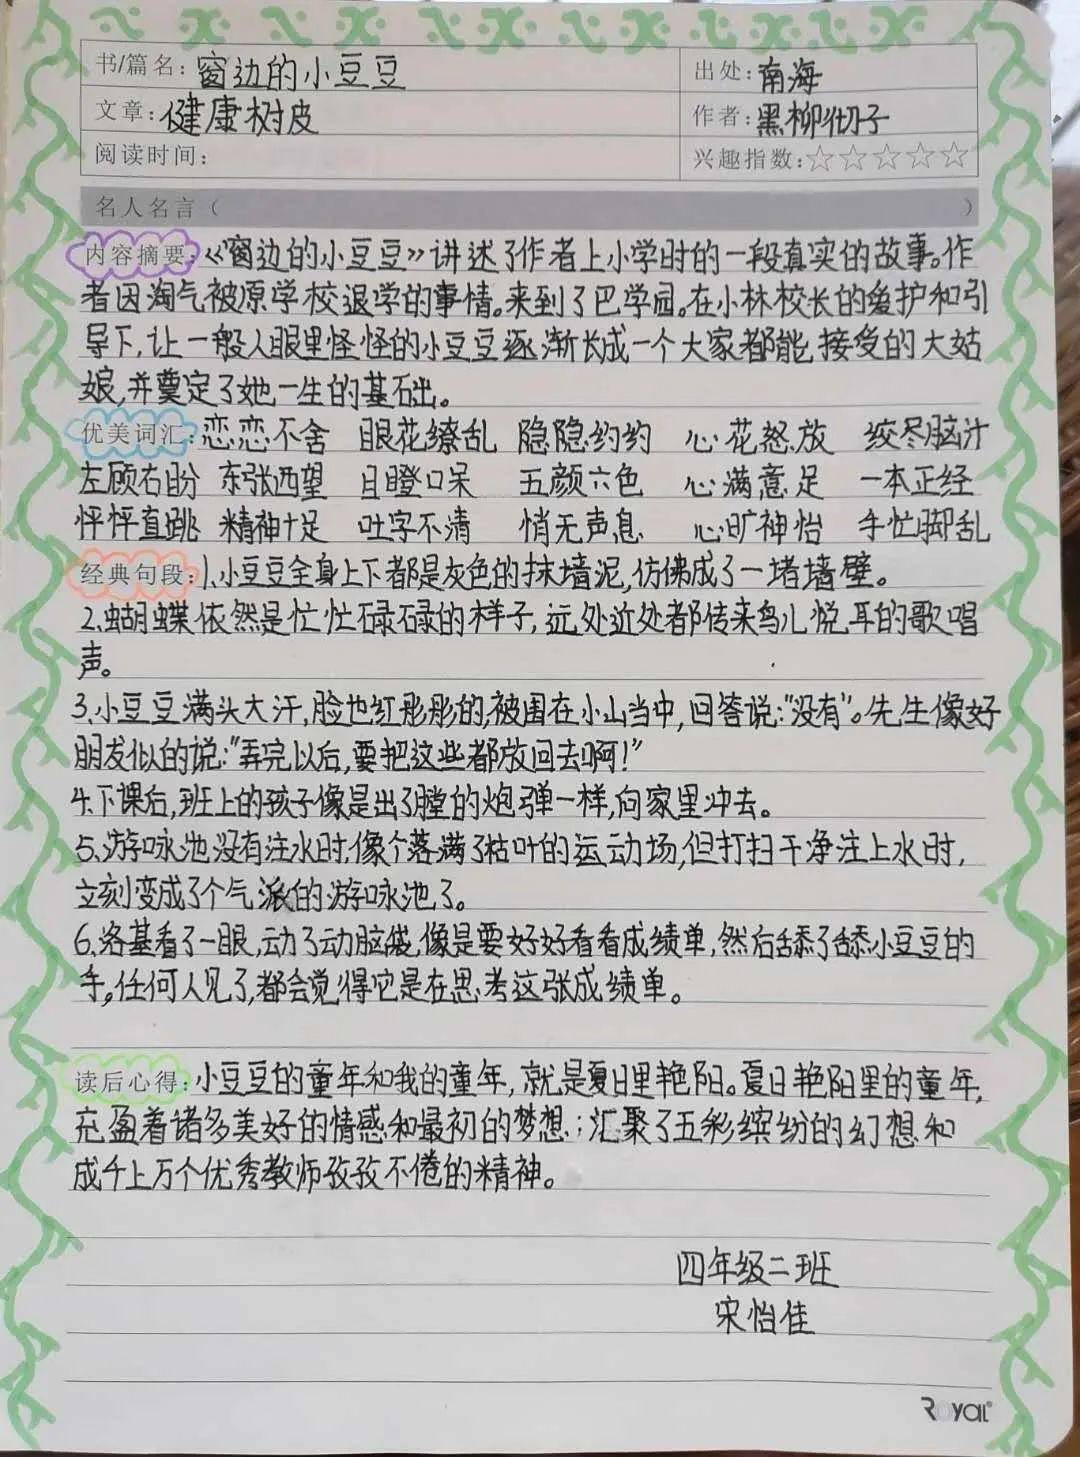 书/篇名：窗边的小豆豆 出处：南海
文章：健康树皮 作者：黑柳彻子
阅读时间： 兴趣指数：☆☆☆☆☆
名人名言（ ）
内容摘要：《窗边的小豆豆》讲述了作者上小学时的一段真实的故事。作
者因淘气被原学校退学的事情。来到了巴学园。在小林校长的爱护和引
导下，让一般人眼里怪怪的小豆豆逐渐长成一个大家都能接受的大姑
娘，并奠定了她一生的基础。
优美词汇：恋恋不舍 眼花缭乱 隐隐约约 心花怒放 绞尽脑汁
左顾右盼 东张西望 目瞪口呆 五颜六色 心满意足 一本正经
怦怦直跳 精神十足 吐字不清 悄无声息 心旷神怡 手忙脚乱
经典句段：1、小豆豆全身上下都是灰色的抹墙泥，仿佛成了一堵墙壁。
2、蝴蝶依然是忙忙碌碌的样子，远处近处都传来鸟儿悦耳的歌唱
声。
3、小豆豆满头大汗，脸也红彤彤的，被围在小山当中，回答说：“没有”。先生像好
朋友似的说：“弄完以后，要把这些都放回去啊！”
4、下课后，班上的孩子像是出了膛的炮弹一样，向家里冲去。
5、游咏池没有注水时，像个落满了枯叶的运动场，但打扫干净注上水时，
立刻变成了个气派的游咏池了。
6、洛基看了一眼，动了动脑袋，像是要好好看看成绩单，然后舔了舔小豆豆的
手。任何人见了，都会觉得它是在思考这张成绩单。
读后心得：小豆豆的童年和我的童年，就是夏日里艳阳。夏日艳阳里的童年，
充盈着诸多美好的情感和最初的梦想；汇聚了五彩缤纷的幻想和
成千上万个优秀教师孜孜不倦的精神。
四年级二班
宋怡佳
Royal